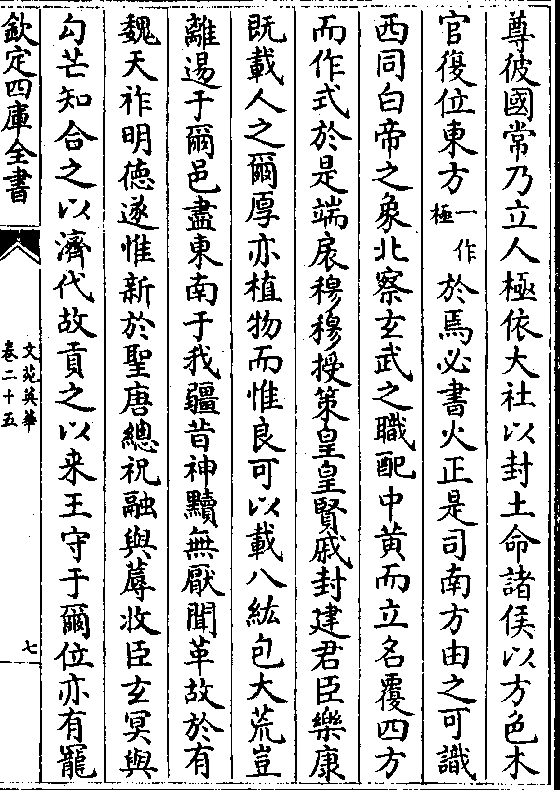 尊彼國常乃立人極依大社以封土命諸侯以方色木
官復位東方一作極於焉必書火正是司南方由之可識
西同白帝之象北察玄武之職配中黄而立名覆四方
而作式於是端扆穆穆授策皇皇賢戚封建君臣樂康
既載人之爾厚亦植物而惟良可以載八紘包大荒豈
離逷于爾邑盡東南于我疆昔神黷無厭聞革故於有
魏天祚明徳遂惟新於聖唐總祝融與蓐收臣玄冥與
勾芒知合之以濟代故貢之以来王守于爾位亦有寵
欽定四庫全書
文苑英華
卷二十五
七